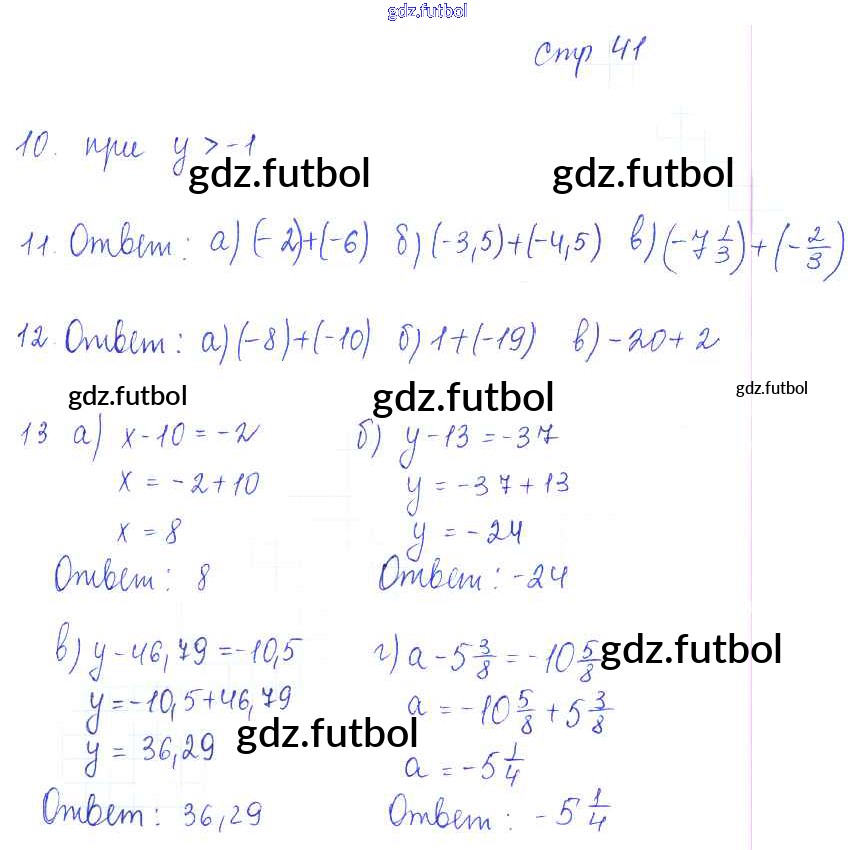 gdz.futbol
стр 41
10. при y > -1
gdz.futbol gdz.futbol
11. Ответ: а) (-2)+(-6) б) (-3,5)+(-4,5) в) (-7 1/3)+(-2/3)
12. Ответ: а) (-8)+(-10) б) 1+(-19) в) -20+2
gdz.futbol gdz.futbol gdz.futbol
13 а) x-10=-2 б) y-13=-37
x = -2+10 y = -37+13
x = 8 y = -24
Ответ: 8 Ответ: -24
в) y-46,79=-10,5 г) a-5 3/8=-10 5/8 gdz.futbol
y=-10,5+46,79 a = -10 5/8 + 5 3/8
y = 36,29 gdz.futbol a = -5 1/4
Ответ: 36,29 Ответ: -5 1/4